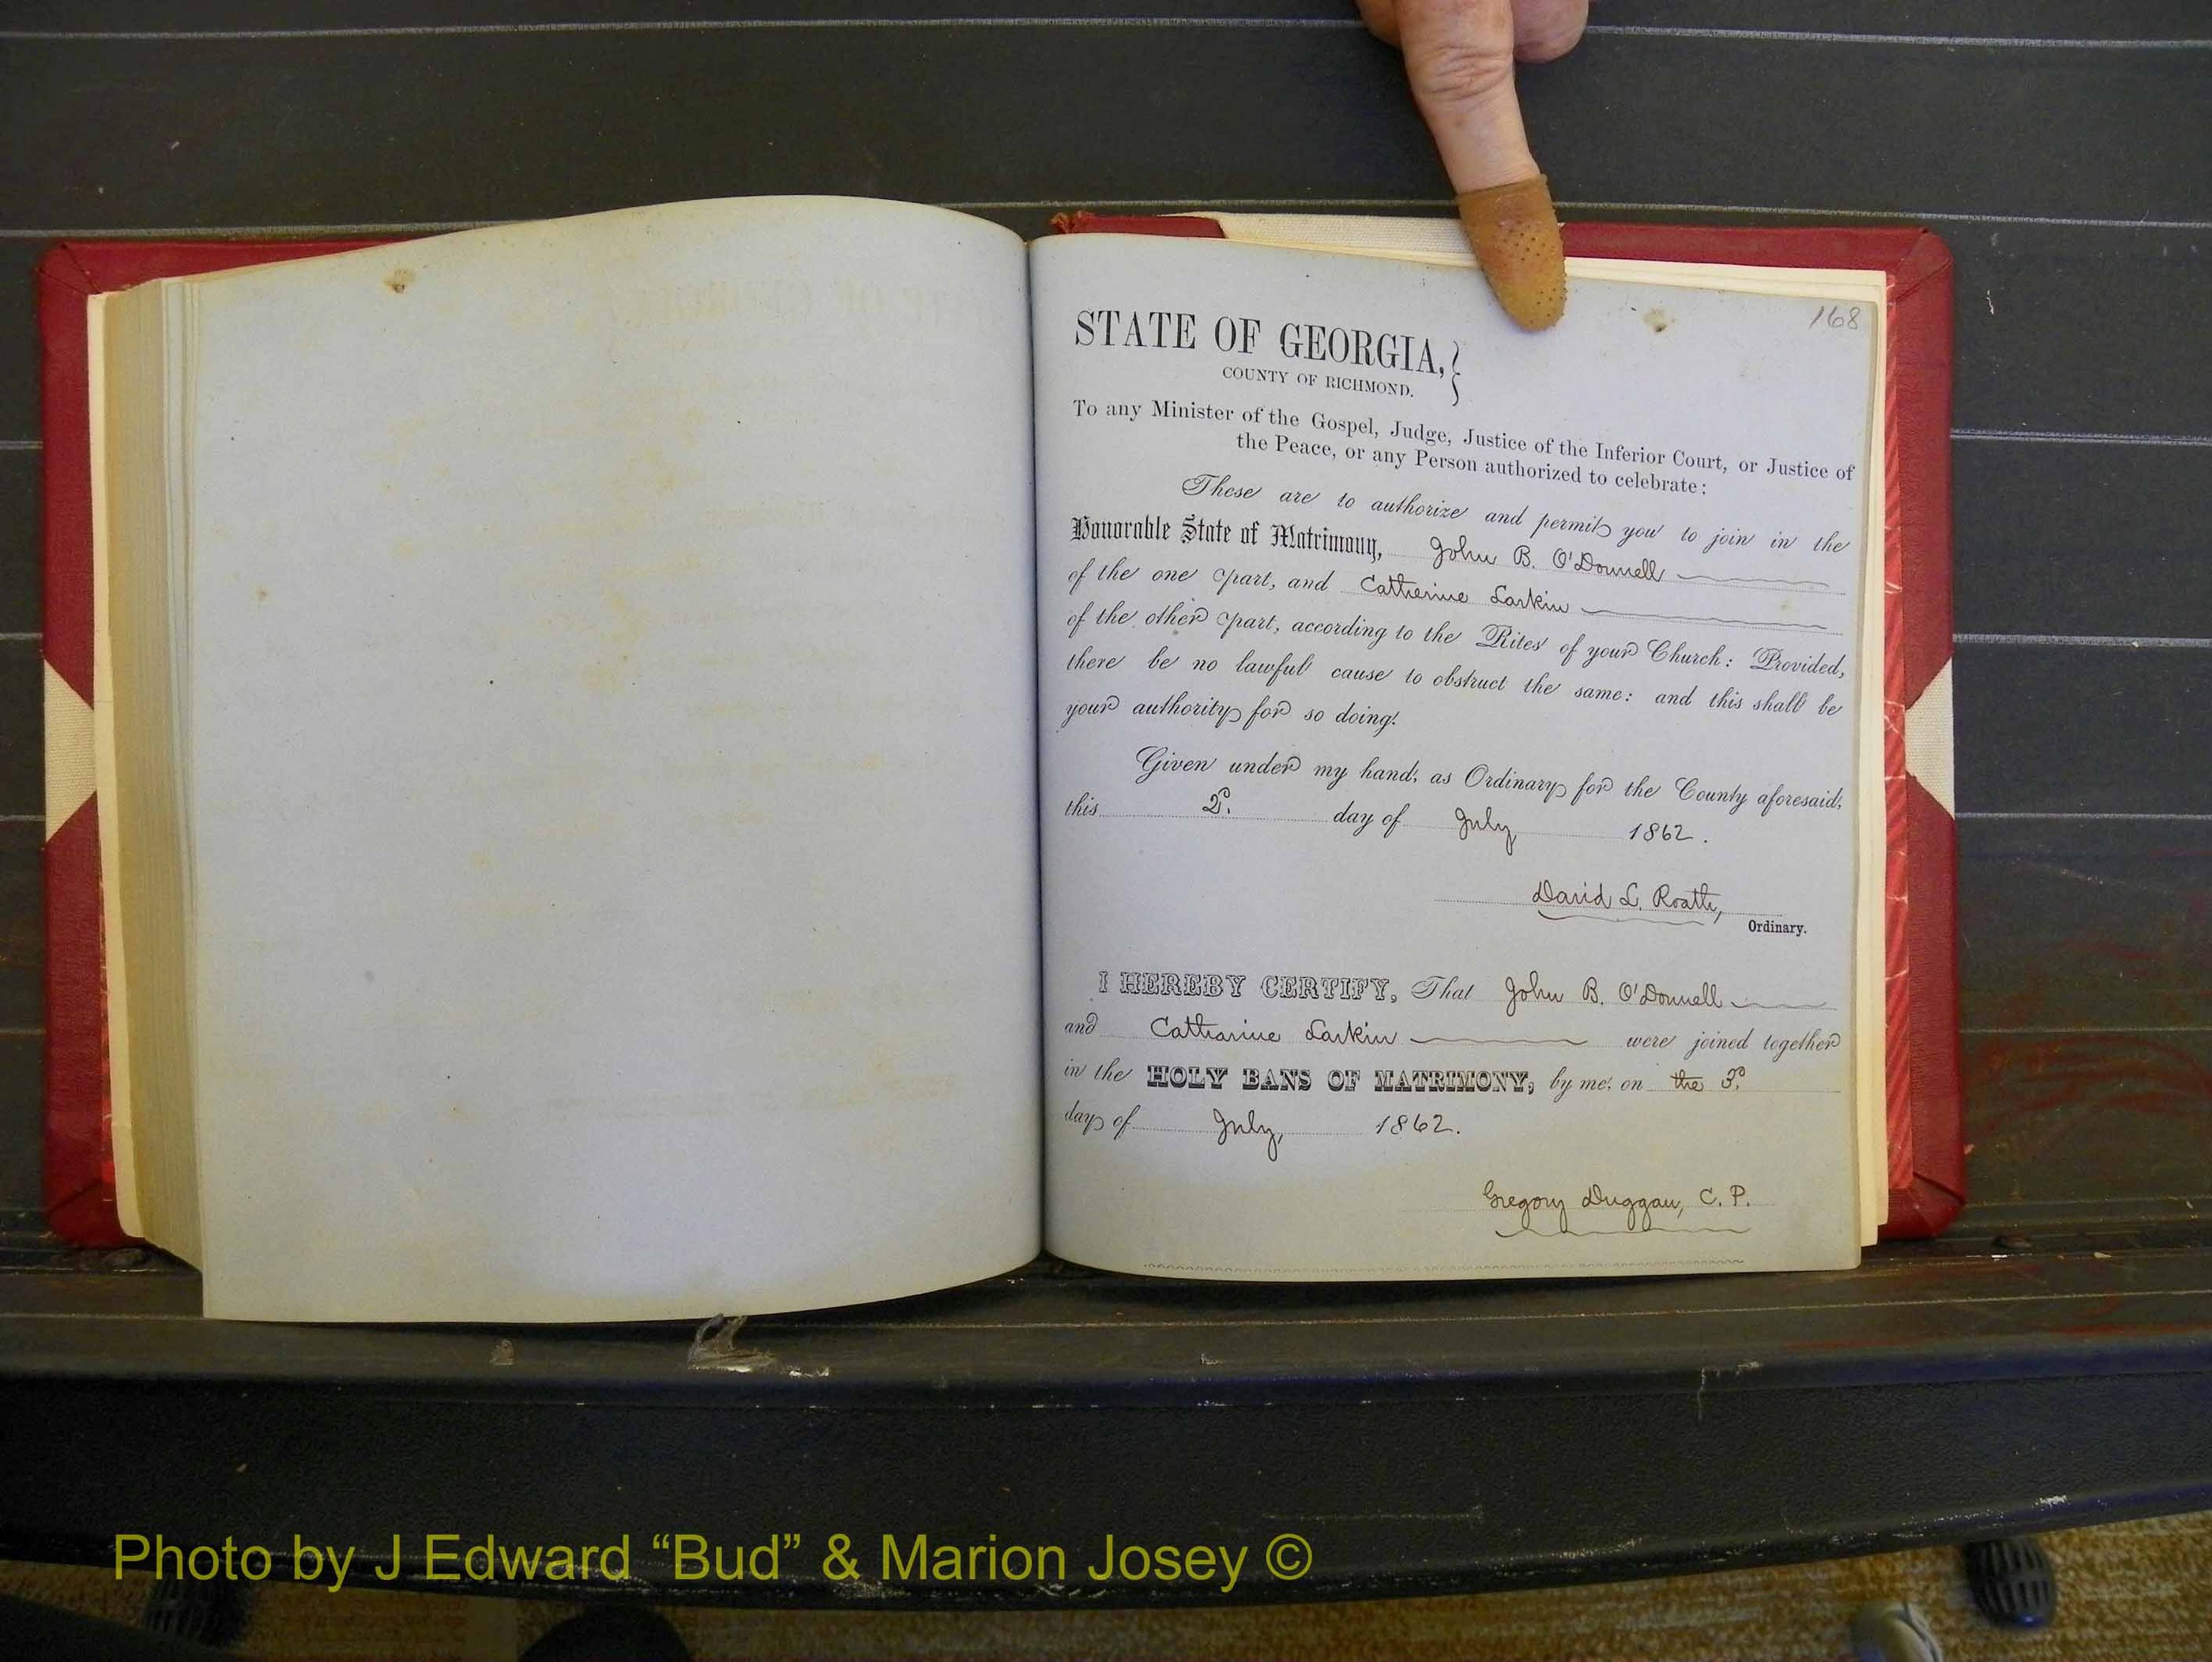 168
STATE OF GEORGIA,
COUNTY OF RICHMOND.
To any Minister of the Gospel, Judge, Justice of the Inferior Court, or Justice of
the Peace, or any Person authorized to celebrate:
These are to authorize and permit you to join in the
Honorable State of Matrimony, John B. O'Donnell
of the one part, and Catherine Larkin
of the other part, according to the Rites of your Church: Provided,
there be no lawful cause to obstruct the same: and this shall be
your authority for so doing.
Given under my hand, as Ordinary for the County aforesaid,
this 2d. day of July 1862.
David L. Roath,
Ordinary.
I HEREBY CERTIFY, That John B. O'Donnell
and Catharine Larkin were joined together
in the HOLY BANS OF MATRIMONY, by me, on the 3d.
day of July, 1862.
Gregory Duggan, C. P.
Photo by J Edward “Bud” & Marion Josey ©